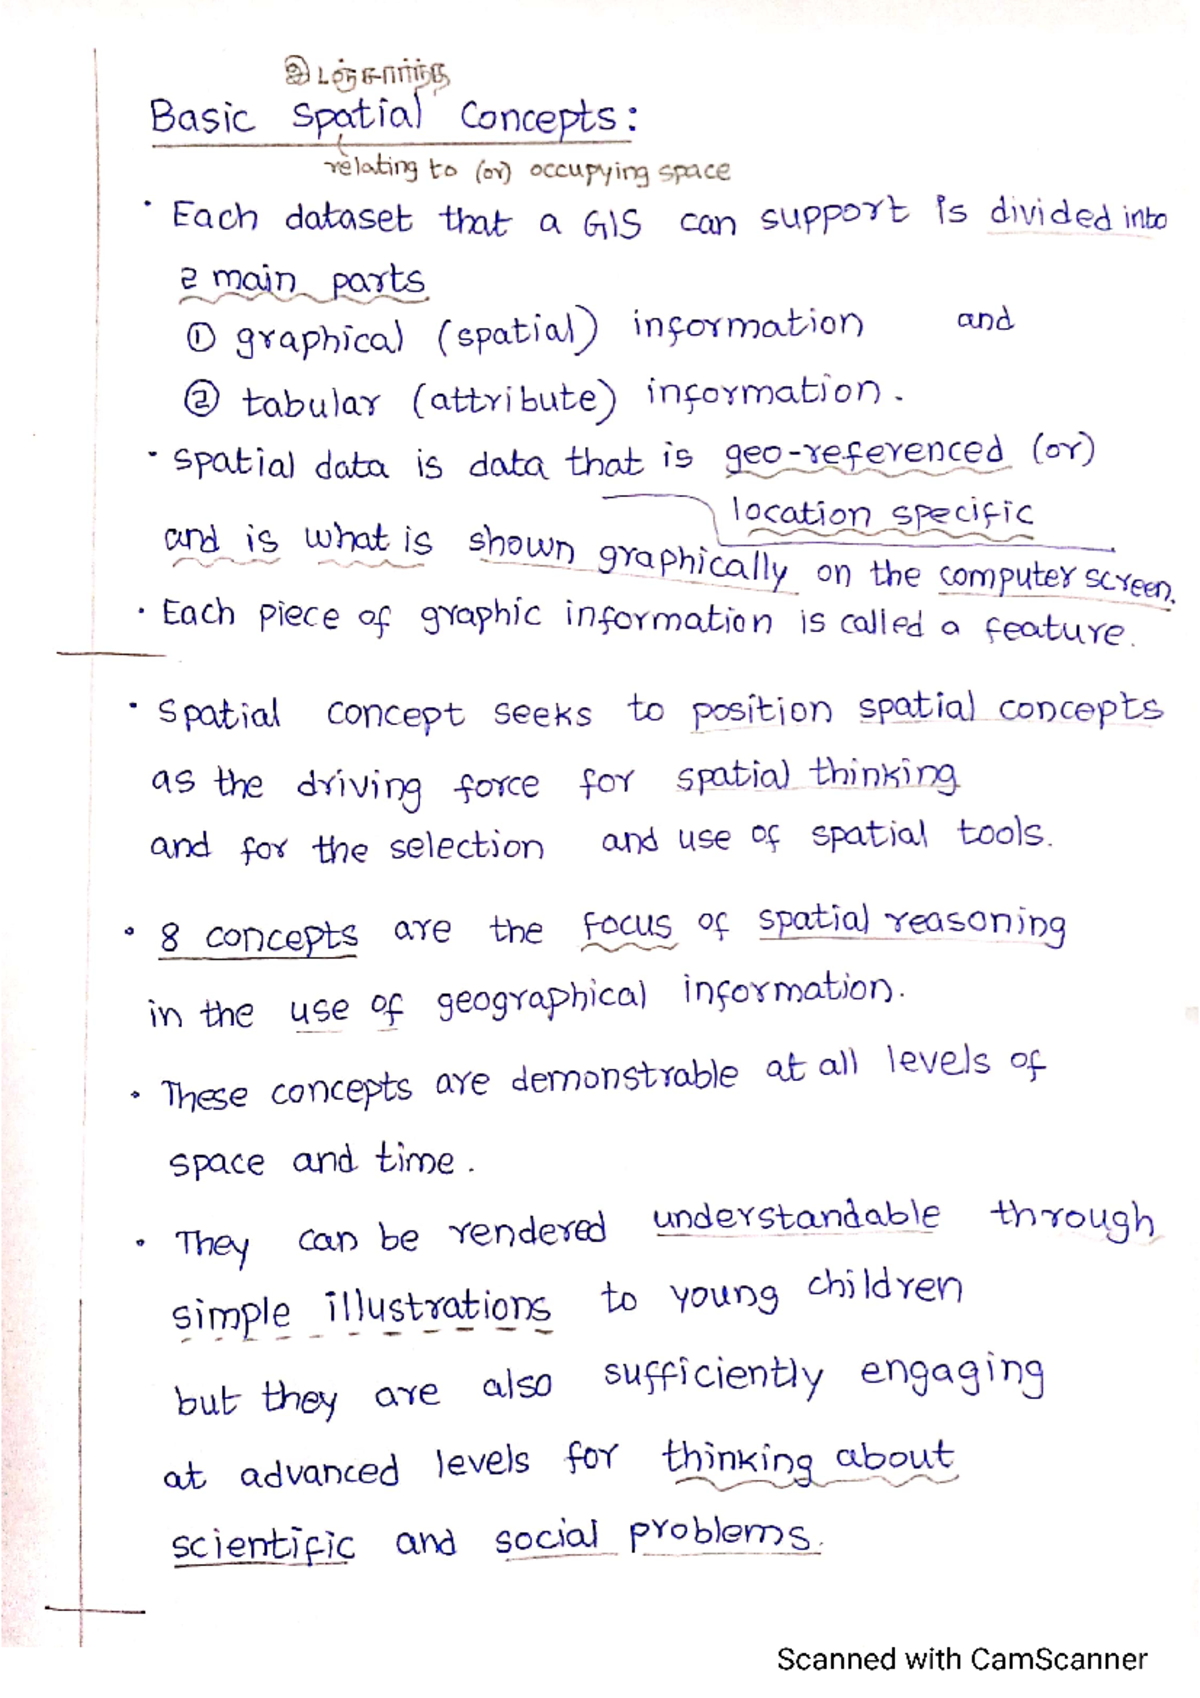 இடஞ்சார்ந்த
Basic Spatial Concepts:
relating to (or) occupying space
· Each dataset that a GIS can support is divided into
2 main parts
① graphical (spatial) information and
② tabular (attribute) information.
· spatial data is data that is geo-referenced (or)
location specific
and is what is shown graphically on the computer screen.
· Each piece of graphic information is called a feature.
· Spatial concept seeks to position spatial concepts
as the driving force for spatial thinking
and for the selection and use of spatial tools.
· 8 concepts are the focus of spatial reasoning
in the use of geographical information.
· These concepts are demonstrable at all levels of
space and time.
· They can be rendered understandable through
simple illustrations to young children
but they are also sufficiently engaging
at advanced levels for thinking about
scientific and social problems.
Scanned with CamScanner